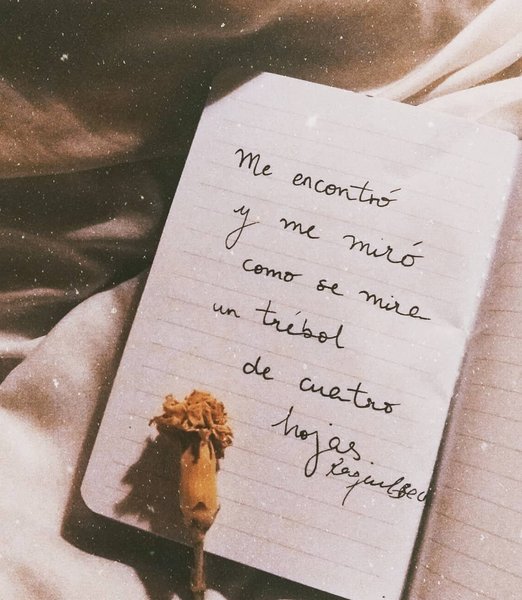 Me encontró
y me miró
como se mira
un trébol
de cuatro
hojas